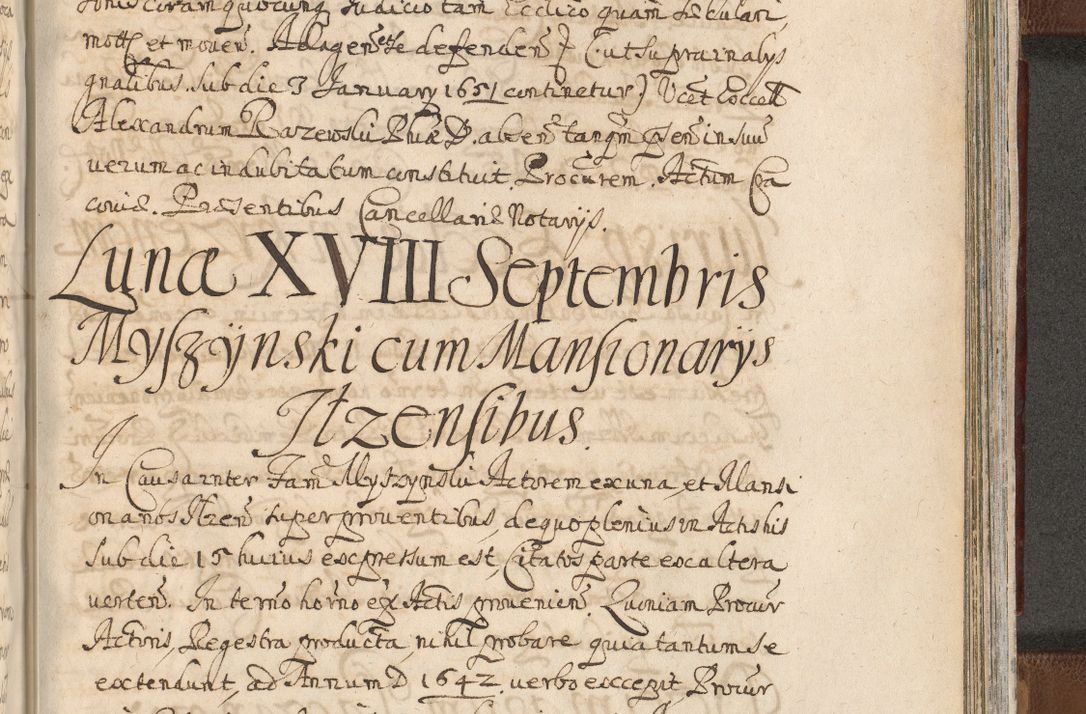 moth et moven. Ad agen et se defenden (ut supra in alys
qnalibus sub die 3 January 1651 continetur) Ucet Coccell
Alexandrum Razewski Phiæ D. absen tanqm psen in suu
verum ac indubitatum constituit Procurem. Actum Cra
coviæ. Præsentibus Cancellariæ Notarijs.
Lunæ XVIII Septembris
Myszÿnski cum Mansionarÿs
Itzensibus.
In Causa inter Fam Myszynski Actorem ex una, et Mansi
onarios Itzen super proventibus, de quo plenius in Actis his
sub die 15 huius expressum est, Citatos parte ex altera
verten. In termo horno ex Actis provenien. Quoniam Procur
Actoris, Regestra producta, nihil probare quia tantum se
extendunt, ad Annum D 1642 verbo excepit, Procur